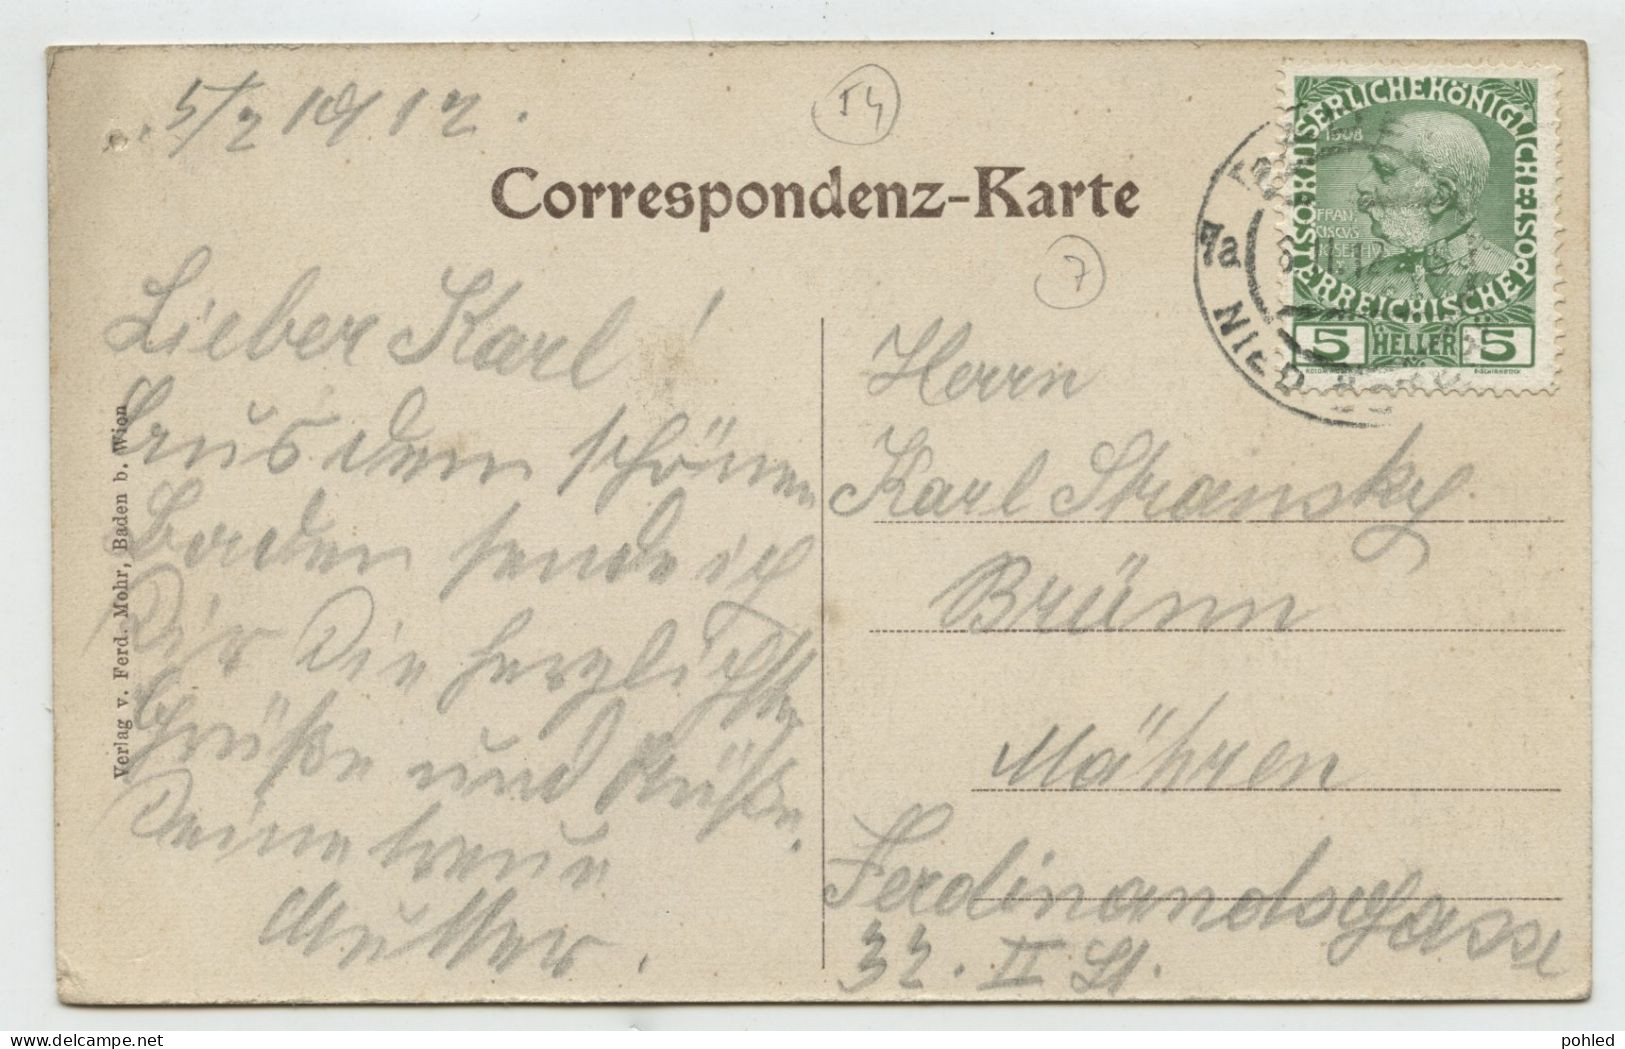 5/7 1912.
54
Correspondenz-Karte
7
Lieber Karl!
Aus dem schönen
Baden sende ich
Dir die herzlichsten
Grüße und Küsse.
Deine treue
Mutter.
Verlag v. Ferd. Mohr, Baden b. Wien
Herrn
Karl Stransky
Brünn
Mähren
Ferdinandsgasse
32. II St.
KAISERLICHEKÖNIGLICHE
ÖSTERREICHISCHE POST
1908
FRAN
CISCVS
5 HELLER 5
7a
NIED
pohled